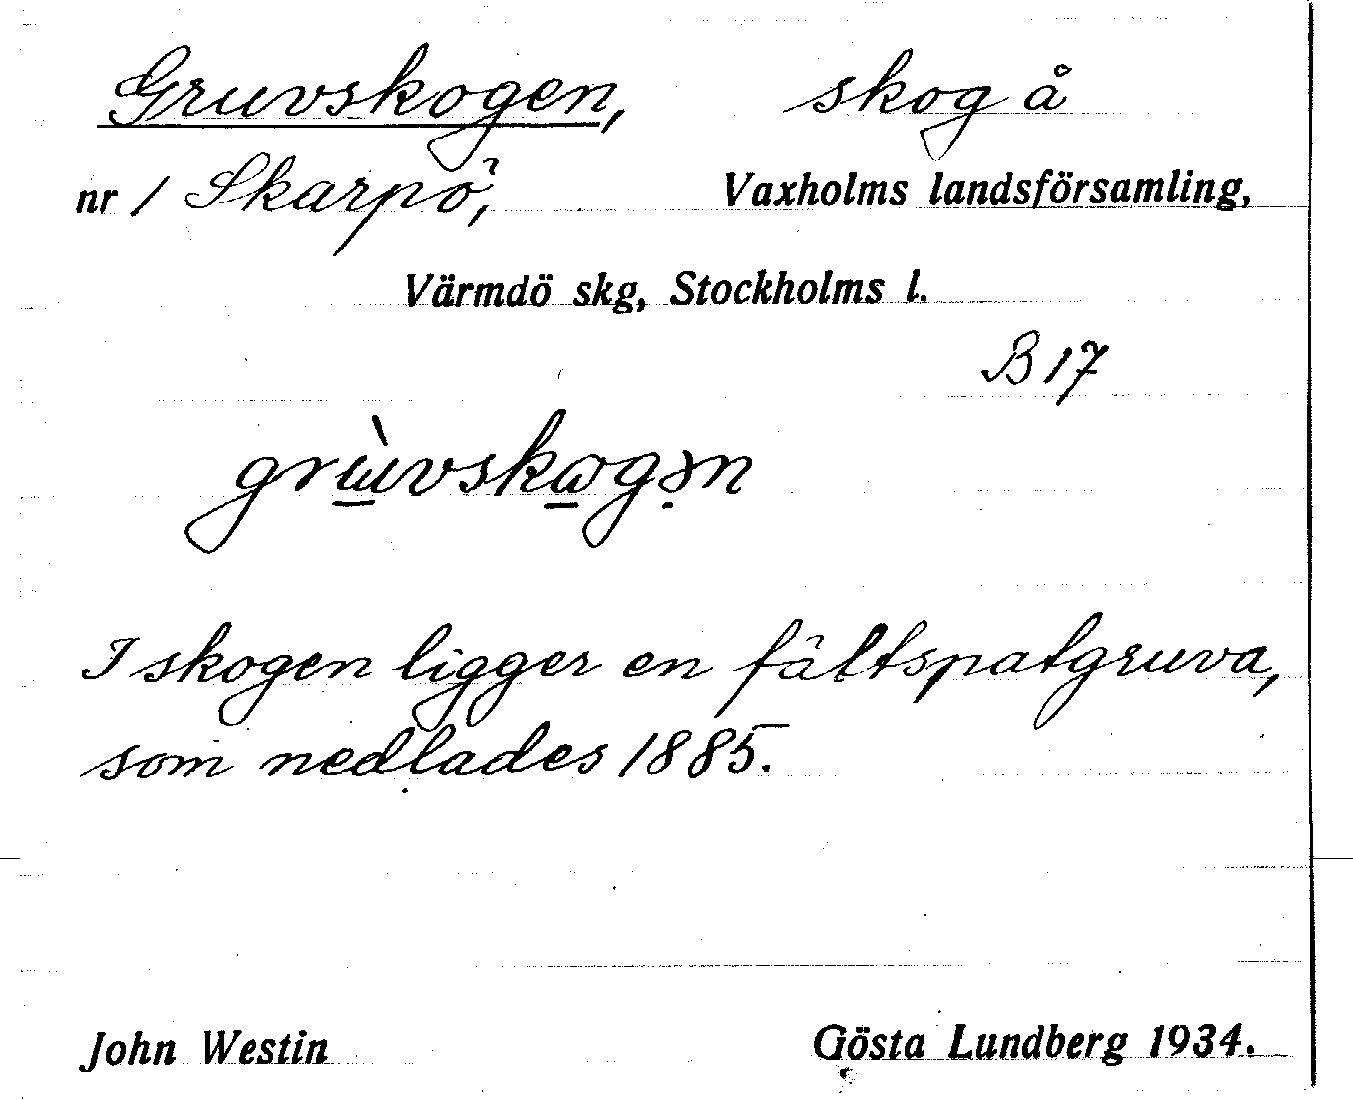 Gruvskogen, skog å
nr 1 Skarpö, Vaxholms landsförsamling,
Värmdö skg, Stockholms l.
B 17
I skogen ligger en fältspatgruva,
som nedlades 1885.
John Westin Gösta Lundberg 1934.